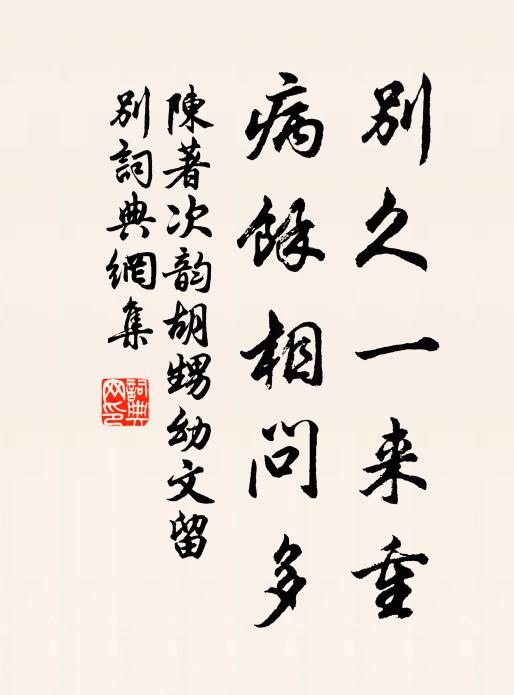 別久一来重
病餘相問多
陳著次韵胡甥幼文留
別詞典網集
詞典
网印